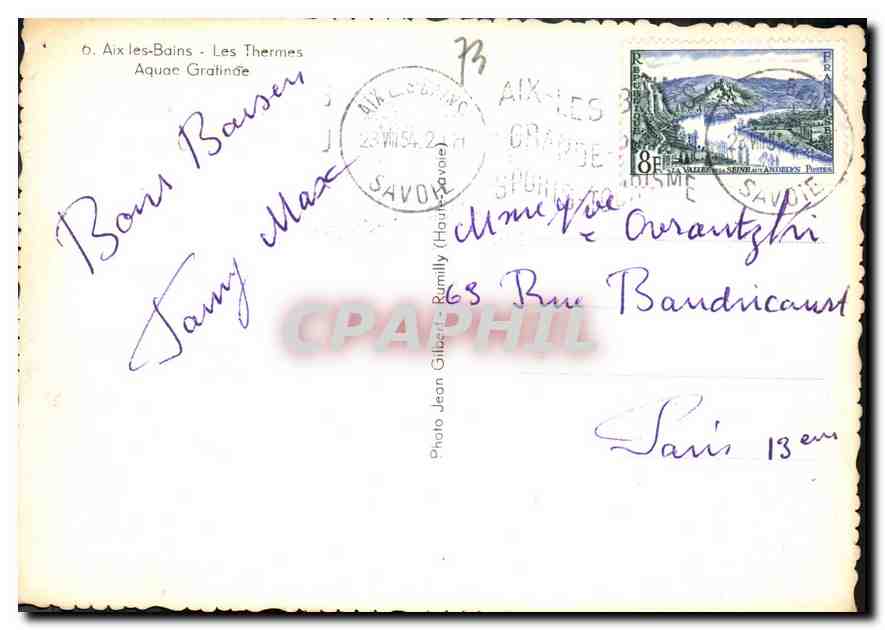 6. Aix les-Bains - Les Thermes
Aquae Gratinae
73
Bons Baisers
Fanny Max
AIX LES BAINS
23 VIII 54
SAVOIE
AIX-LES
GRANDE
SPORTS TOURISME
REPUBLIQUE FRANÇAISE
8F
LA VALLÉE DE LA SEINE AUX ANDELYS POSTES
SAVOIE
Photo Jean Gilbert - Rumilly (Haute-Savoie)
63 Rue Baudricourt
Paris 13 em
CPAPHIL